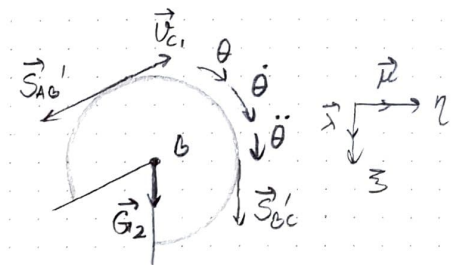 v⃗_C₁
θ
θ̇
θ̈
S⃗_AB'
B
G⃗₂
S⃗_BC'
μ⃗
η
λ⃗
ξ